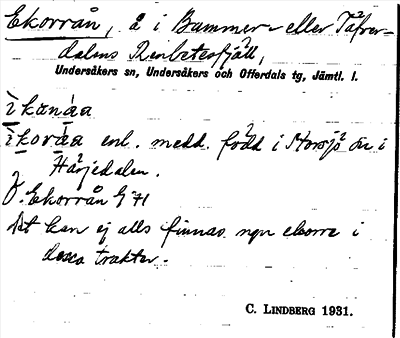 Ekorrån, å i Bummer- eller Täfver-
dalens Renbetesfjäll,
Undersåkers sn, Undersåkers och Offerdals tg, Jämtl. l.
ikoráa enl. medd. född i Storsjö sn i
Härjedalen.
Ekorrån
Det kan ej alls finnas ngn ekorre i
dessa trakter.
C. LINDBERG 1931.